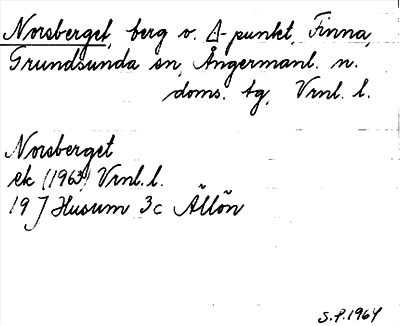 Norsberget, berg o. △-punkt, Finna,
Grundsunda sn, Ångermanl. n.
doms. tg, Vrnl. l.
Norsberget
ek (1963) Vrnl. l.
19 J Husum 3c Ällön
S.P. 1964